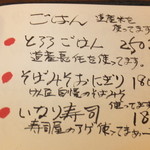 ごはん 道産米を
使ってます
とろろごはん 250
道産長任を使ってます。
そばみそおにぎり 180
自慢のそばみそ
使ってます
いなり寿司 18
寿司屋のアゲ使ってます